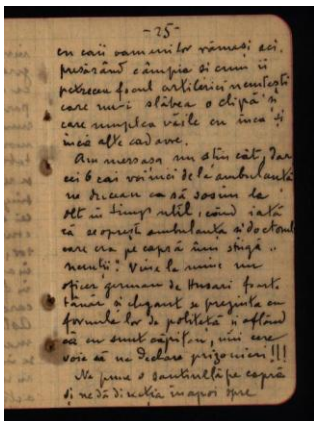 -25-
cu caii oamenilor rămași aci,
presărând câmpia și cum îi
petrecea focul artileriei nemțești
care nu-i slăbea o clipă și
care umplea văile cu încă și
încă alte cadavre.
Am mers așa nu știu cât, dar
cei 6 cai voinici de la ambulanță
ne duceau ca să sosim la
Olt în timp util, când iată
că se oprește ambulanța și doctorul
care era pe capră îmi strigă "
nemții! Vine la mine un
ofițer german de Husari foarte
tânăr și elegant se prezintă cu
formula lor de politeță și aflând
că eu sunt căpitan, îmi cere
voia să ne declare prizonieri!!!
Ne pune o santinelă pe capră
și ne dă direcția înapoi spre